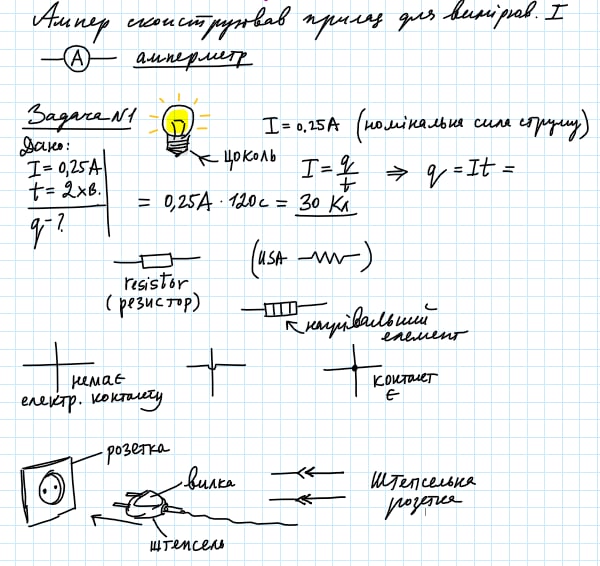 Ампер сконструював прилад для вимірюв. I
A амперметр
Задача N1
I = 0,25A (номінальна сила струму)
Дано:
I = 0,25A
t = 2 хв.
q - ?
цоколь
I = q/t ⇒ q = It =
= 0,25A · 120c = 30 Кл
resistor
(резистор)
(USA)
нагрівальний
елемент
немає
електр. контакту
контакт
є
розетка
вилка
штепсель
Штепсельна
розетка